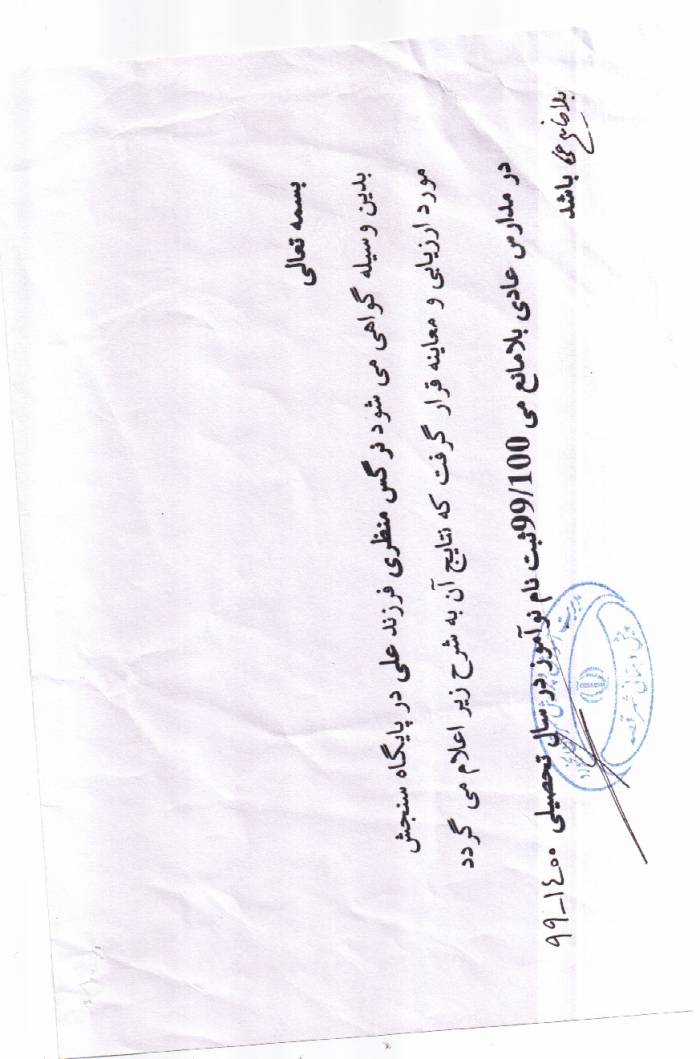 بسمه تعالی
بدین وسیله گواهی می شود نرگس منظری فرزند علی در پایگاه سنجش
مورد ارزیابی و معاینه قرار گرفت که نتایج آن به شرح زیر اعلام می گردد
در مدارس عادی بلامانع می 99/100ثبت نام نوآموز در سال تحصیلی ۹۹-۱۴۰۰
باشد